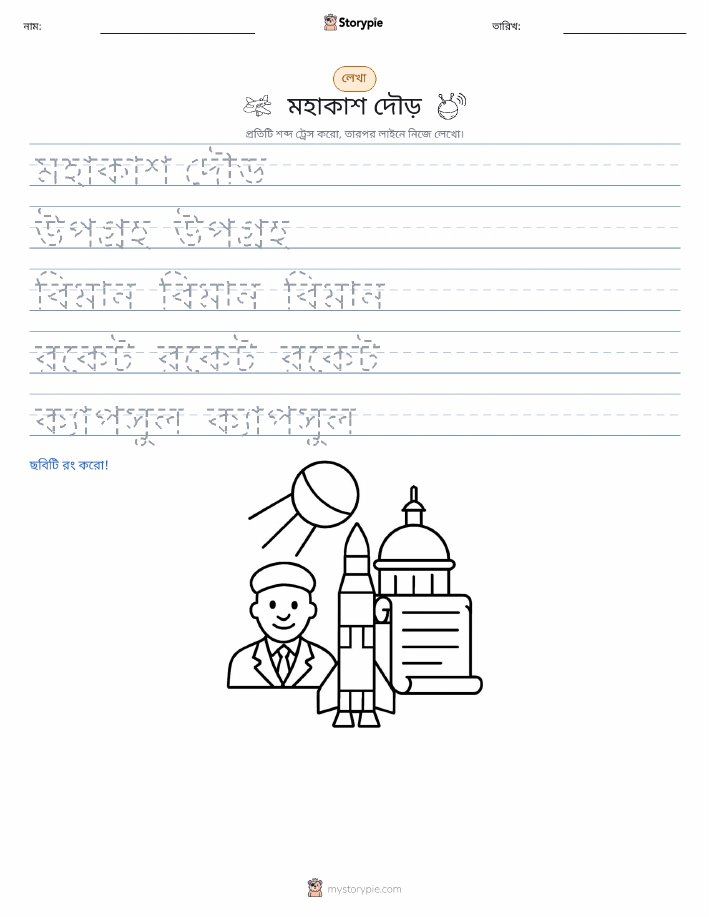 নাম:
Storypie
তারিখ:
লেখা
মহাকাশ দৌড়
প্রতিটি শব্দ ট্রেস করো, তারপর লাইনে নিজে লেখো।
মহাকাশ দৌড়
উপগ্রহ উপগ্রহ
বিমান বিমান বিমান
রকেট রকেট রকেট
ক্যাপসুল ক্যাপসুল
ছবিটি রং করো!
mystorypie.com